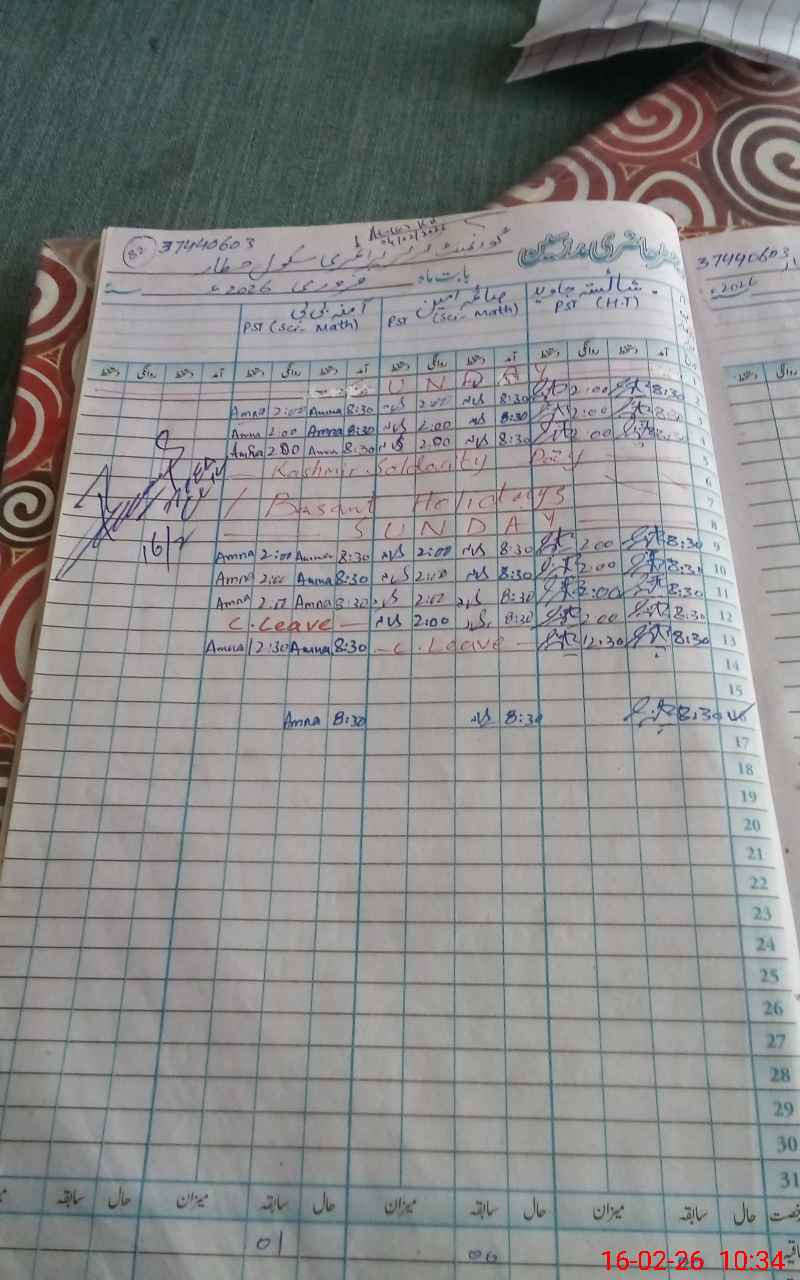 82 37440603
37440603
گورنمنٹ گرلز پرائمری سکول حطار
بابت ماہ فروری 2026ء
2026
آمنہ بی بی صائمہ امین شائستہ جاوید
PST (Sci- Math) PST (Sci- Math) PST (H.T)
دستخط روانگی دستخط آمد دستخط روانگی دستخط آمد دستخط روانگی دستخط آمد
S U N D A Y 1
Amna 2:00 Amna 8:30 2:00 8:30 2:00 8:30 2
Amna 2:00 Amna 8:30 2:00 8:30 2:00 8:30 3
Amna 2:00 Amna 8:30 2:00 8:30 2:00 8:30 4
Kashmir Soldarity Day 5
6
Basant Holidays 7
S U N D A Y 8
Amna 2:00 Amna 8:30 2:00 8:30 2:00 8:30 9
Amna 2:00 Amna 8:30 2:00 8:30 2:00 8:30 10
Amna 2:00 Amna 8:30 2:00 8:30 2:00 8:30 11
C.Leave 2:00 8:30 2:00 8:30 12
Amna 12:30 Amna 8:30 C.Leave 12:30 8:30 13
16/2
14
15
Amna 8:30 8:30 8:30 16
17
18
19
20
21
22
23
24
25
26
27
28
29
30
31
سابقہ حال میزان سابقہ حال میزان سابقہ حال میزان سابقہ حال
01 00
16-02-26 10:34